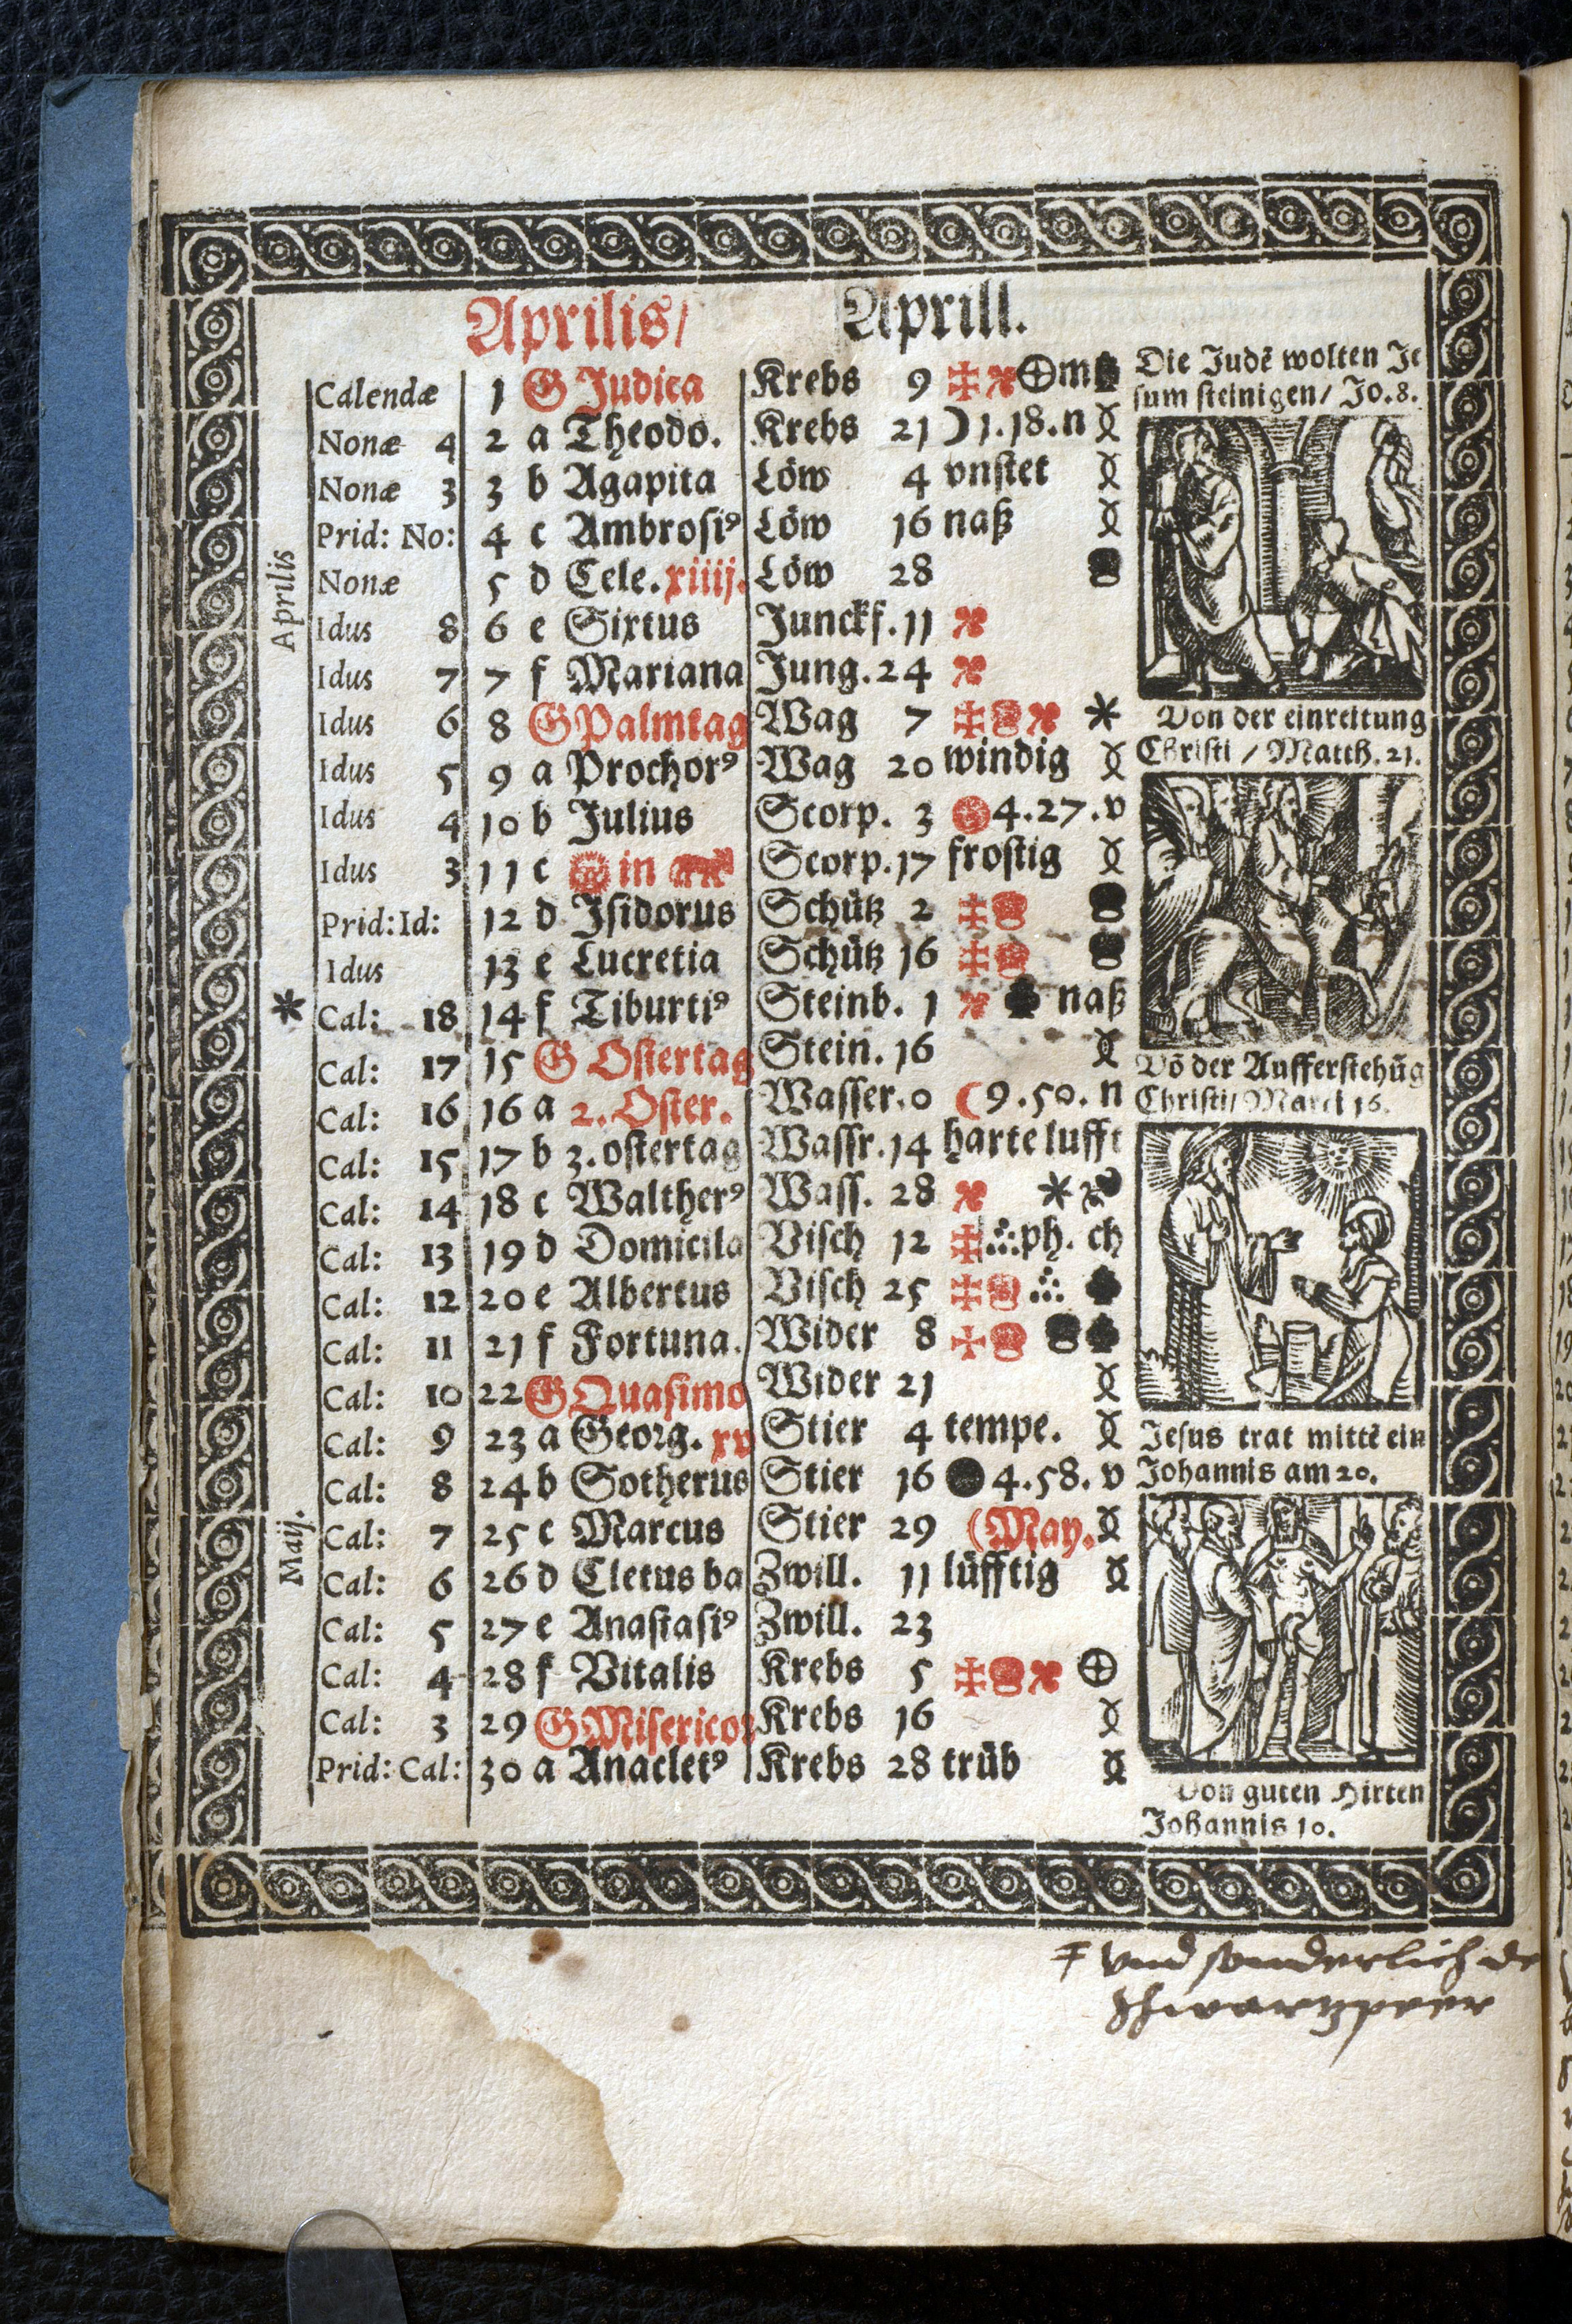 Aprilis/ Aprill.
Calendæ 1 G Judica Krebs 9 m
Nonæ 4 2 a Theodo. Krebs 21 1.18.n
Nonæ 3 3 b Agapita Löw 4 vnstet
Prid: No: 4 c Ambrosiꝰ Löw 16 naß
Nonæ 5 d Cele. xiiij. Löw 28
Idus 8 6 e Sixtus Junckf. 11
Idus 7 7 f Mariana Jung. 24
Idus 6 8 G Palmtag Wag 7
Idus 5 9 a Prochorꝰ Wag 20 windig
Idus 4 10 b Julius Scorp. 3 4.27.v
Idus 3 11 c in Scorp. 17 frostig
Prid: Id: 12 d Isidorus Schütz 2
Idus 13 e Lucretia Schütz 16
* Cal: 18 14 f Tiburtiꝰ Steinb. 1 naß
Cal: 17 15 G Ostertag Stein. 16
Cal: 16 16 a 2. Oster. Wasser. 0 9.50.n
Cal: 15 17 b 3. ostertag Wassr. 14 harte lufft
Cal: 14 18 c Waltherꝰ Wass. 28
Cal: 13 19 d Domicila Visch 12 ph. ch
Cal: 12 20 e Albertus Visch 25
Cal: 11 21 f Fortuna. Wider 8
Cal: 10 22 G Quasimo Wider 21
Cal: 9 23 a Georg. xv Stier 4 tempe.
Cal: 8 24 b Sotherus Stier 16 4.58.v
Cal: 7 25 c Marcus Stier 29 (May.
Cal: 6 26 d Cletus ba Zwill. 11 lüfftig
Cal: 5 27 e Anastasiꝰ Zwill. 23
Cal: 4 28 f Vitalis Krebs 5
Cal: 3 29 G Misericor Krebs 16
Prid: Cal: 30 a Anacletꝰ Krebs 28 trüb
Aprilis
Maij.
Die Judē wolten Je
sum steinigen/ Jo. 8.
Von der einreitung
Christi / Matth. 21.
Vō der Aufferstehūg
Christi/ Marci 16.
Jesus trat mittē ein
Johannis am 20.
Von guten Hirten
Johannis 10.
vnd sonderlich de